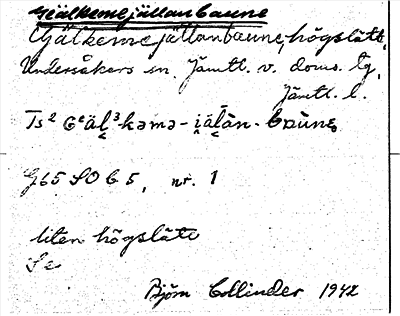 Gjälkemejällanbaune
Gjälkemejällanbaune, högslätt,
Undersåkers sn. Jämtl. v. doms. tg,
Jämtl. l.
högslätt
G65 SO 65, nr. 1
liten högslätt
Se
Björn Collinder 1942